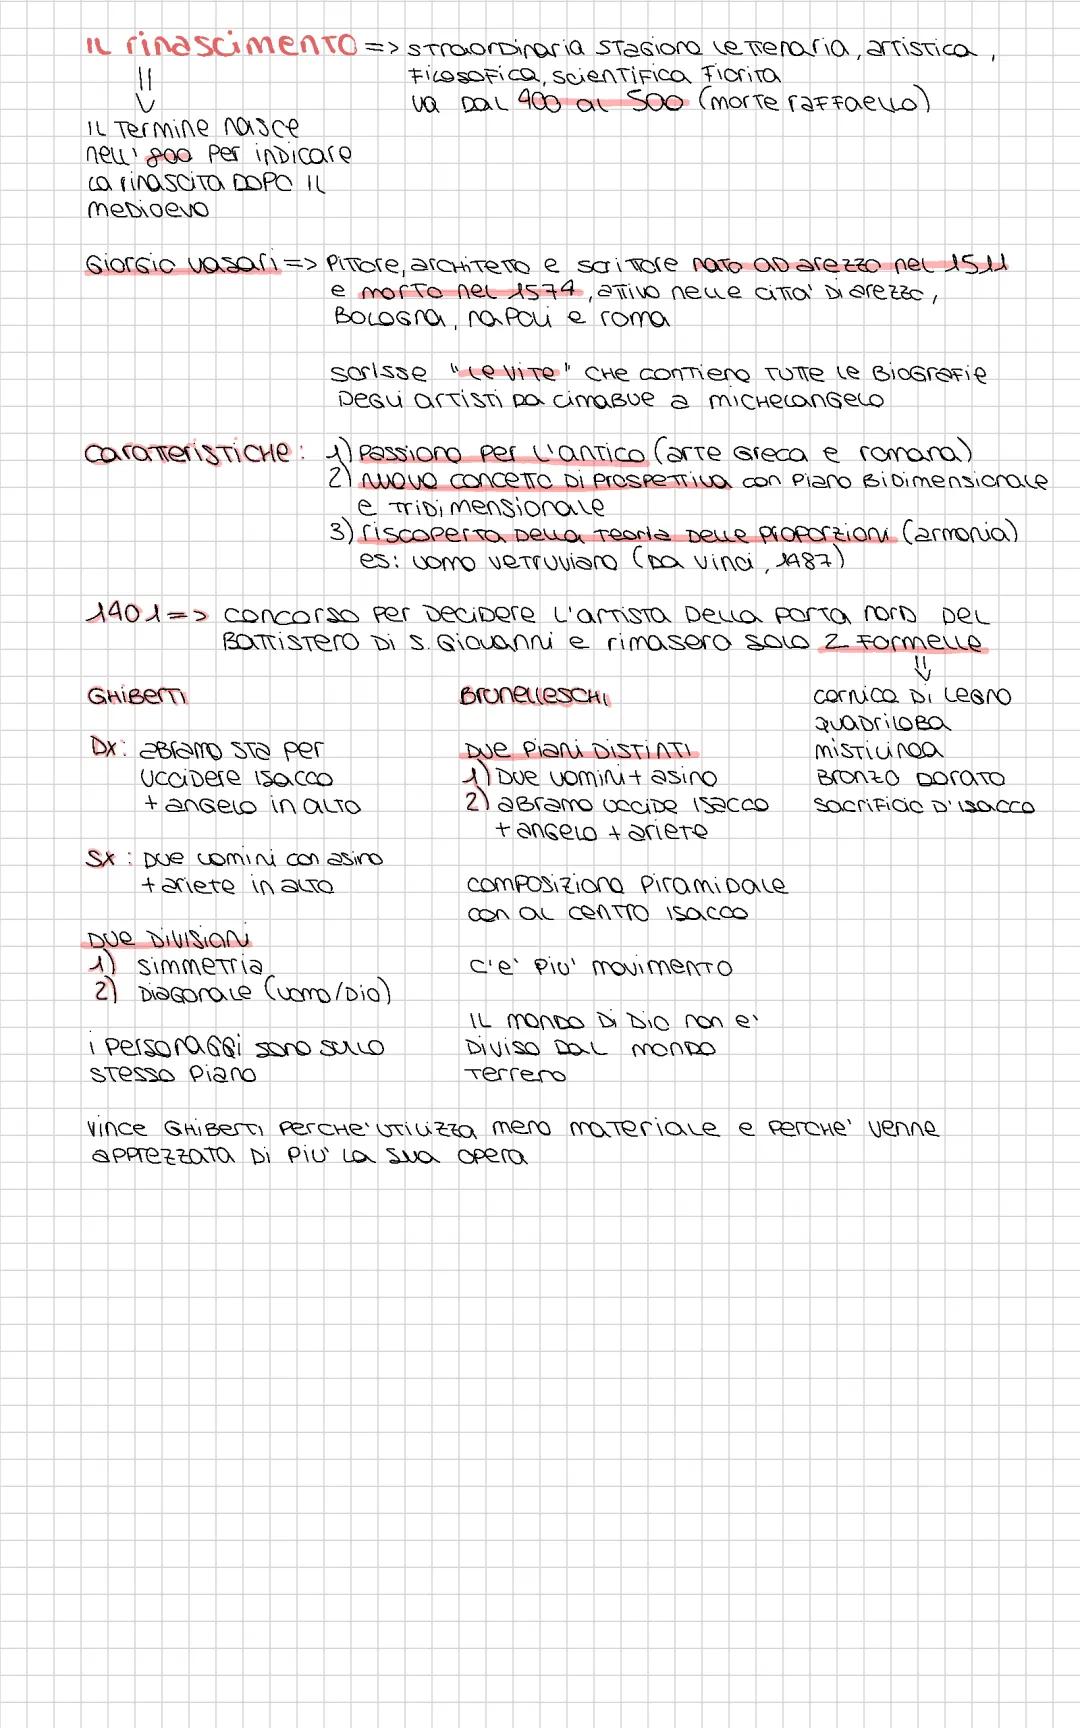 IL rinascimento => straordinaria stagione letteraria, artistica,
filosofica, scientifica fiorita
va dal 400 al 500 (morte raffaello)
IL Termine nasce
nell' 800 per indicare
la rinascita dopo il
medioevo
Giorgio vasari => Pittore, architetto e scrittore nato ad arezzo nel 1511
e morto nel 1574, attivo nelle citta' di arezzo,
Bologna, napoli e roma
scrisse "le vite" che contiene tutte le biografie
degli artisti da cimabue a michelangelo
caratteristiche: 1) passione per l'antico (arte greca e romana)
2) nuovo concetto di prospettiva con piano bidimensionale
e tridimensionale
3) riscoperta della teoria delle proporzioni (armonia)
es: uomo vetruviano (da vinci, 1487)
1401 => concorso per decidere l'artista della porta nord del
Battistero di s. Giovanni e rimasero solo 2 formelle
Ghiberti
Dx: abramo sta per
uccidere isacco
+ angelo in alto
Sx: due uomini con asino
+ ariete in alto
Due divisioni
1) simmetria
2) Diagonale (uomo/Dio)
i personaggi sono sullo
stesso piano
Brunelleschi
Due piani distinti
1) Due uomini + asino
2) abramo uccide isacco
+ angelo + ariete
composizione piramidale
con al centro isacco
c'e' piu' movimento
il mondo di Dio non e'
diviso dal mondo
terreno
cornice di legno
quadriloba
mistilinea
Bronzo dorato
sacrificio d'isacco
vince Ghiberti perche' utilizza meno materiale e perche' venne
apprezzata di piu' la sua opera